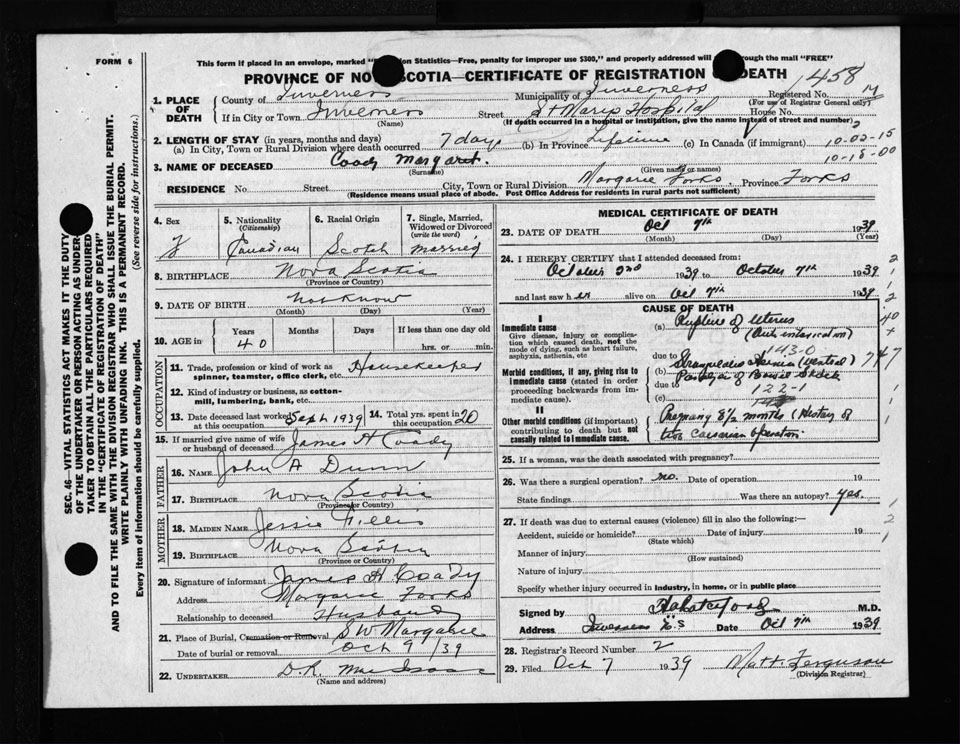 FORM 6
This form if placed in an envelope, marked " ion Statistics—Free, penalty for improper use $300," and properly addressed will through the mail "FREE"
PROVINCE OF NO SCOTIA—CERTIFICATE OF REGISTRATION DEATH
1458
1. PLACE OF DEATH
County of Inverness Municipality of Inverness Registered No. 14
(For use of Registrar General only)
If in City or Town Inverness Street St Marys Hospital House No.
(Name) (If death occurred in a hospital or institution, give the name instead of street and number)
2. LENGTH OF STAY (in years, months and days)
(a) In City, Town or Rural Division where death occurred 7 days (b) In Province Lifetime (c) In Canada (if immigrant)
10-02-15
10-18-00
3. NAME OF DECEASED Coady Margaret.
(Surname) (Given name or names)
RESIDENCE No. Street City, Town or Rural Division Margaree Forks. Province Forks
(Residence means usual place of abode. Post Office Address for residents in rural parts not sufficient)
4. Sex F
5. Nationality (Citizenship) Canadian
6. Racial Origin Scotch
7. Single, Married, Widowed or Divorced (write the word) married
8. BIRTHPLACE Nova Scotia
(Province or Country)
9. DATE OF BIRTH not know
(Month) (Day) (Year)
10. AGE in Years Months Days If less than one day old
40 hrs. or min.
OCCUPATION
11. Trade, profession or kind of work as spinner, teamster, office clerk, etc. Housekeeper
12. Kind of industry or business, as cotton mill, lumbering, bank, etc.
13. Date deceased last worked at this occupation Sept 1939
14. Total yrs. spent in this occupation 20
15. If married give name of wife or husband of deceased James H Coady
FATHER
16. NAME John A Dunn
17. BIRTHPLACE Nova Scotia
(Province or Country)
MOTHER
18. MAIDEN NAME Jessie Gillis
19. BIRTHPLACE Nova Scotia
(Province or Country)
20. Signature of informant James H Coady
Address Margaree Forks
Relationship to deceased Husband
21. Place of Burial, Cremation or Removal S W Margaree
Date of burial or removal Oct 9 /39
22. UNDERTAKER D. R. MacIsaac
(Name and address)
MEDICAL CERTIFICATE OF DEATH
23. DATE OF DEATH Oct 7th 1939
(Month) (Day) (Year)
24. I HEREBY CERTIFY that I attended deceased from:
October 2nd 1939 to October 7th 1939
and last saw her alive on Oct 7th 1939
CAUSE OF DEATH
I
Immediate cause
Give disease, injury or complication which caused death, not the mode of dying, such as heart failure, asphyxia, asthenia, etc
(a) Rupture of Uterus
143-0
Morbid conditions, if any, giving rise to immediate cause (stated in order proceeding backwards from immediate cause).
due to Strangulated Hernia
(b)
due to
122-1
(c)
II
Other morbid conditions (if important) contributing to death but not causally related to immediate cause.
Pregnancy 8½ months (History of
two Caesarian operation.
25. If a woman, was the death associated with pregnancy?
26. Was there a surgical operation? no. Date of operation 19
State findings Was there an autopsy? yes.
27. If death was due to external causes (violence) fill in also the following:—
Accident, suicide or homicide? Date of injury 19
(State which)
Manner of injury
(How sustained)
Nature of injury
Specify whether injury occurred in Industry, in home, or in public place
Signed by M.D.
Address Inverness N.S Date Oct 7th 1939
28. Registrar's Record Number 2
29. Filed Oct 7 1939 Matt. Ferguson
(Division Registrar)
SEC. 46—VITAL STATISTICS ACT MAKES IT THE DUTY
OF THE UNDERTAKER OR PERSON ACTING AS UNDER-
TAKER TO OBTAIN ALL THE PARTICULARS REQUIRED
IN THE "CERTIFICATE OF REGISTRATION OF DEATH"
AND TO FILE THE SAME WITH THE DIVISION REGISTRAR WHO SHALL ISSUE THE BURIAL PERMIT.
WRITE PLAINLY WITH UNFADING INK. THIS IS A PERMANENT RECORD.
Every item of information should be carefully supplied. (See reverse side for instructions.)